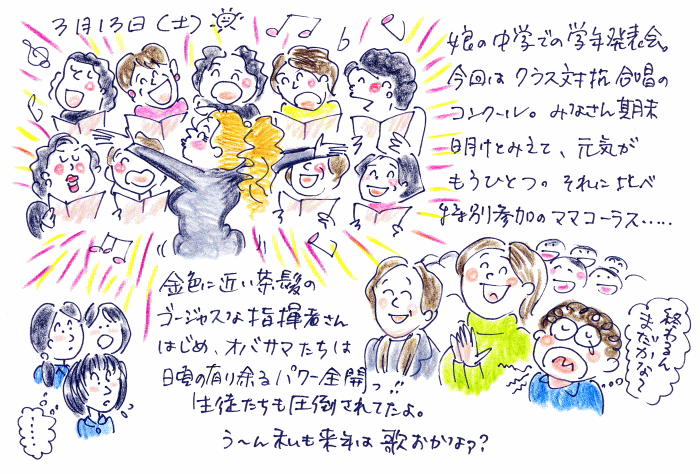 3月13日(土)
娘の中学での学年発表会。
今回はクラス対抗合唱の
コンクール。みなさん期末
明けとみえて、元気が
もうひとつ。それに比べ
特別参加のママコーラス……
金色に近い茶髪の
ゴージャスな指揮者さん
はじめ、オバサマたちは
日頃の有り余るパワー全開っ!!
生徒たちも圧倒されてたよ。
う〜ん私も来年は歌おかなァ?
終わるん
まだかな〜
……